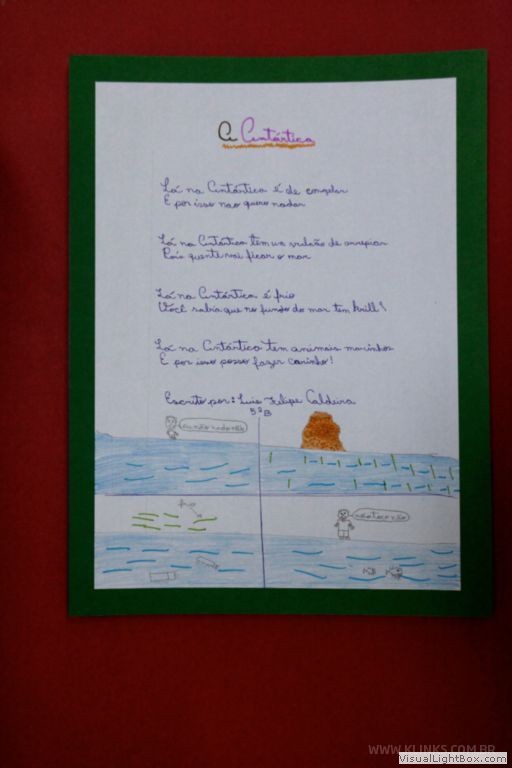 A Antártica
Lá na Antártica é de congelar
E por isso nao quero nadar
Lá na Antártica tem um vulcão de arrepiar
Pois quente vai ficar o mar
Lá na Antártica é frio
Você sabia que no fundo do mar tem krill!
Lá na Antártica tem animais marinhos
E por isso posso fazer carinho!
Escrito por: Luis Felipe Caldeira
5ºB
não
WWW.KLINKS.COM.BR
VisualLightBox.com